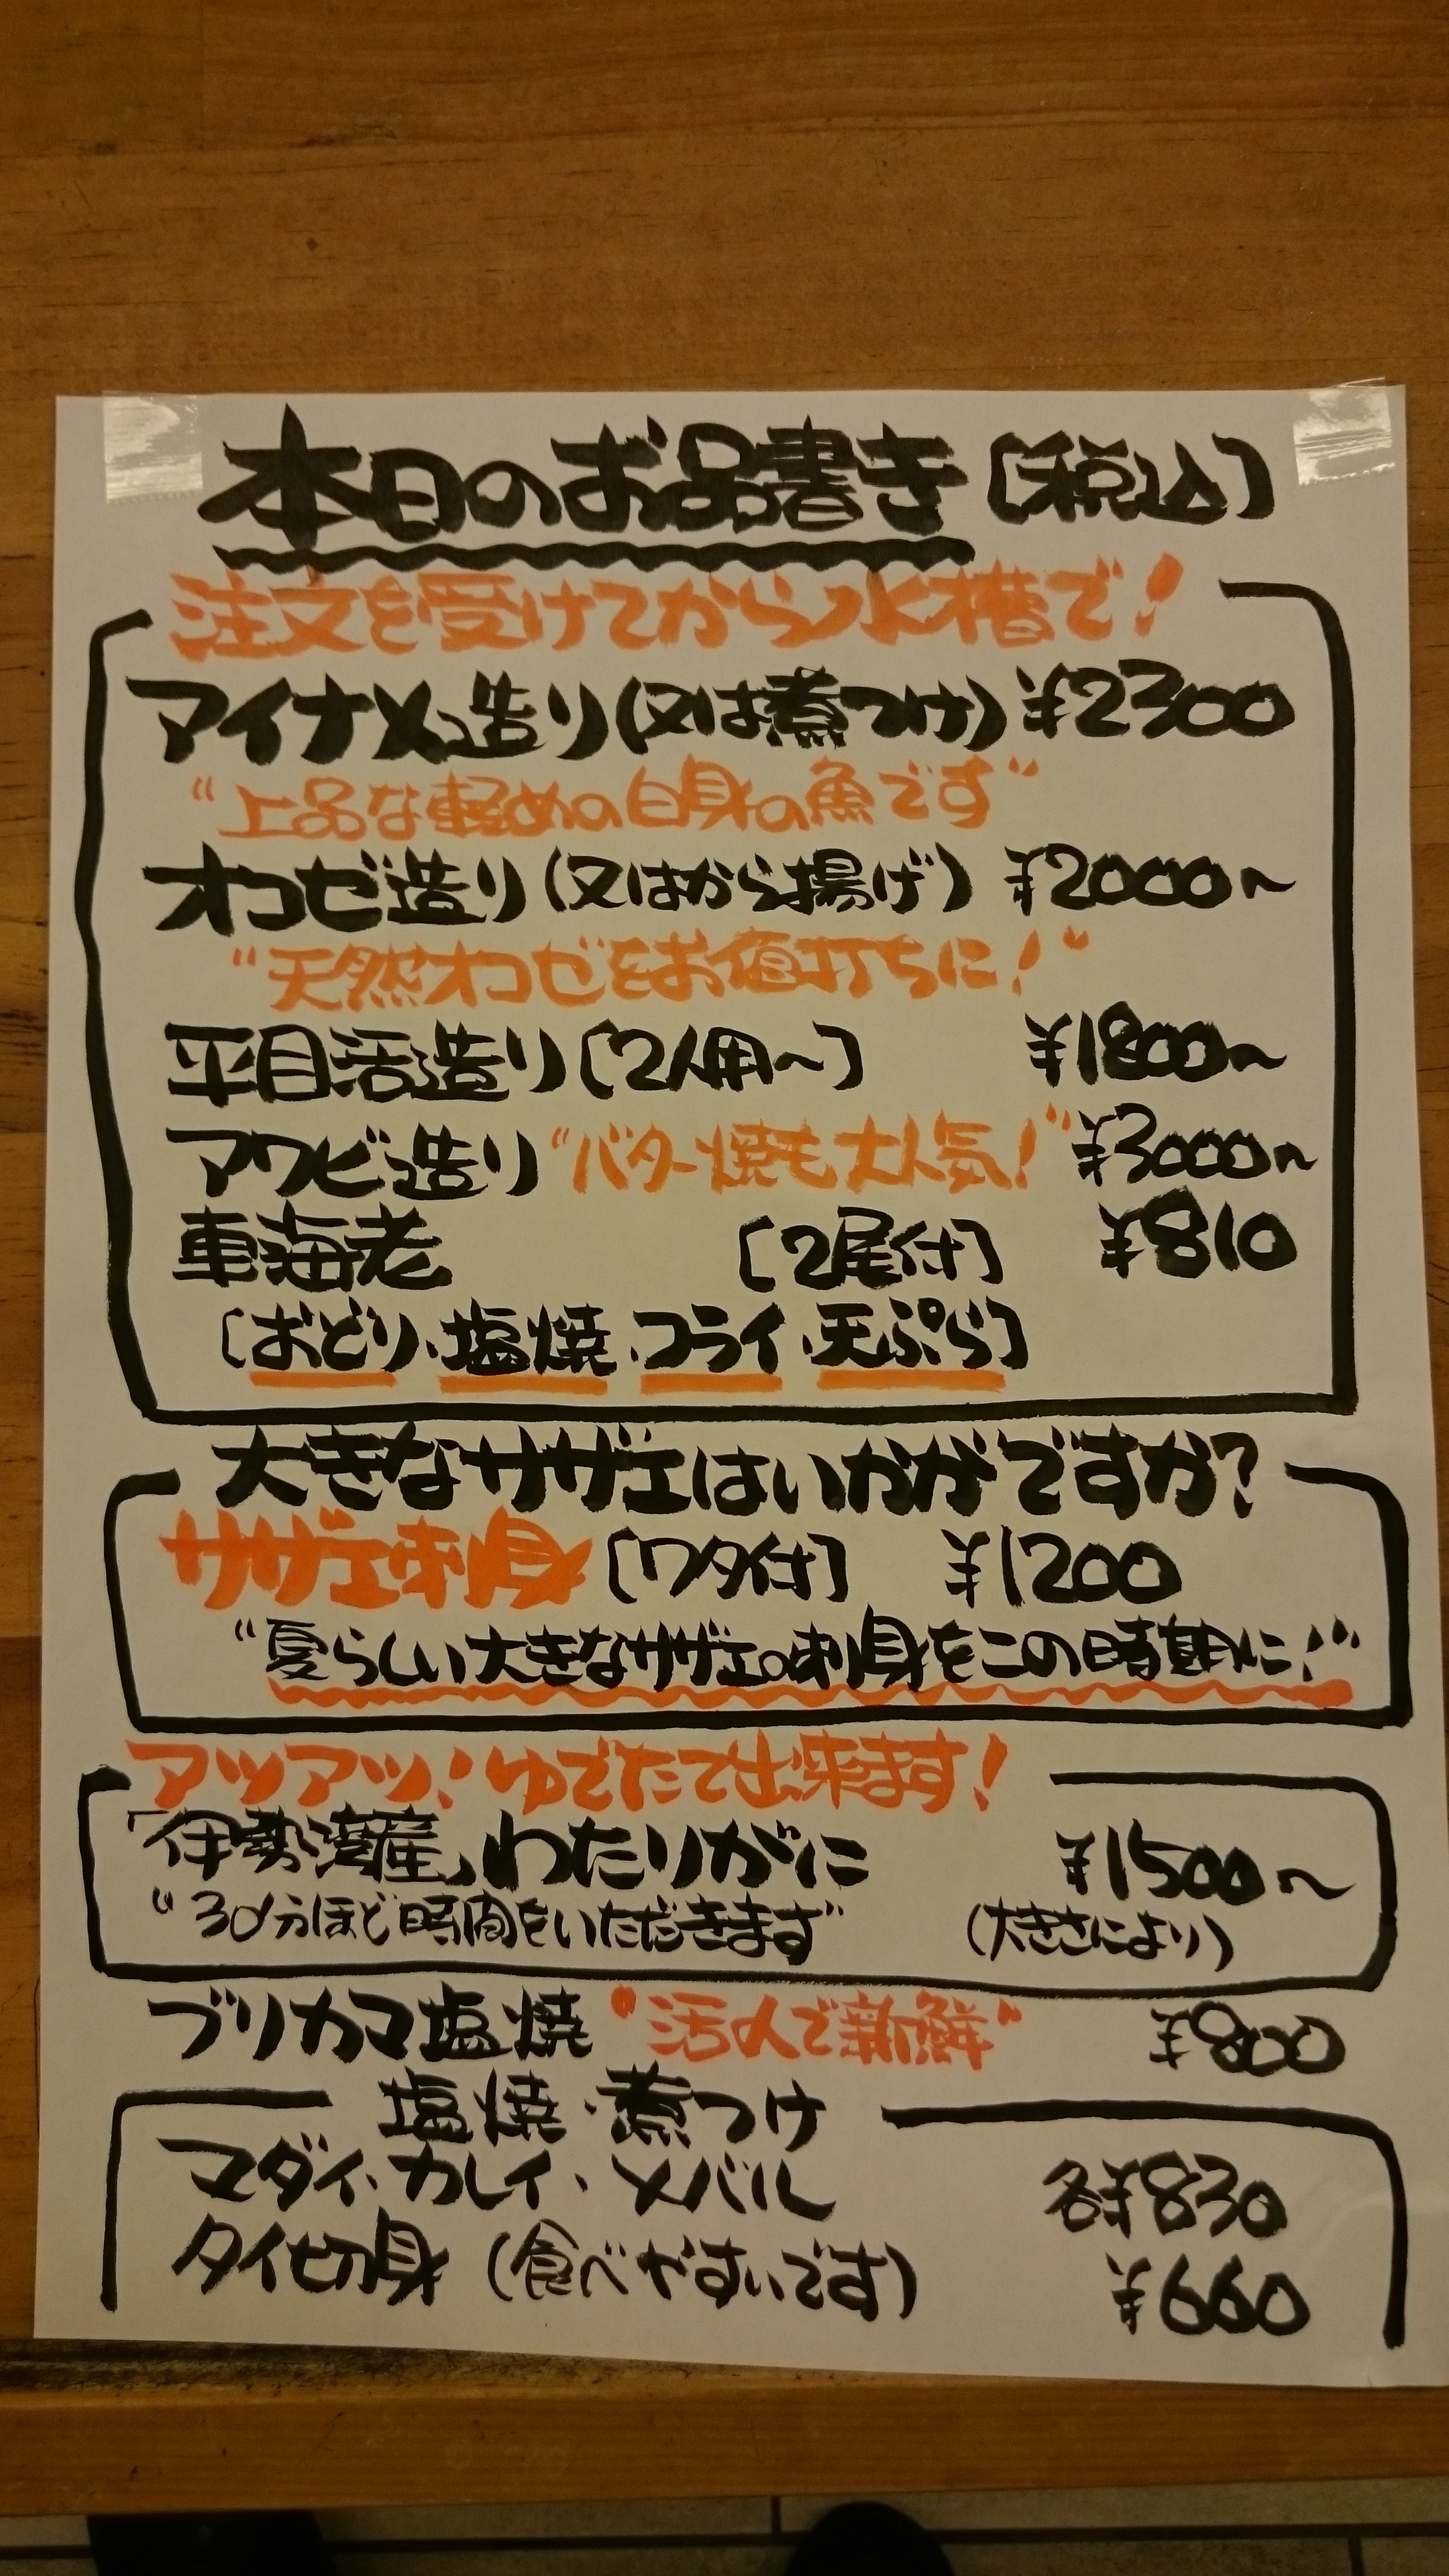 本日のお品書き〔税込〕
注文を受けてから水槽で！
アイナメ造り(又は煮つけ) ¥2300
“上品な軽めの白身の魚です”
オコゼ造り(又はから揚げ) ¥2000〜
“天然オコゼをお値打ちに！”
平目活造り〔2人用〜〕 ¥1800〜
アワビ造り“バター焼も大人気！” ¥3000〜
車海老 〔2尾付〕 ¥810
〔おどり・塩焼・フライ・天ぷら〕
大きなサザエはいかがですか？
サザエ刺身〔ワタ付〕 ¥1200
“夏らしい大きなサザエの刺身をこの時期に！”
アツアツ！ゆでたて出来ます！
「伊勢湾産」わたりがに ¥1500〜
“30分ほど時間をいただきます” (大きさにより)
ブリカマ塩焼“活〆で新鮮” ¥800
塩焼・煮つけ
マダイ・カレイ・メバル 各¥830
タイ切身(食べやすいです) ¥660